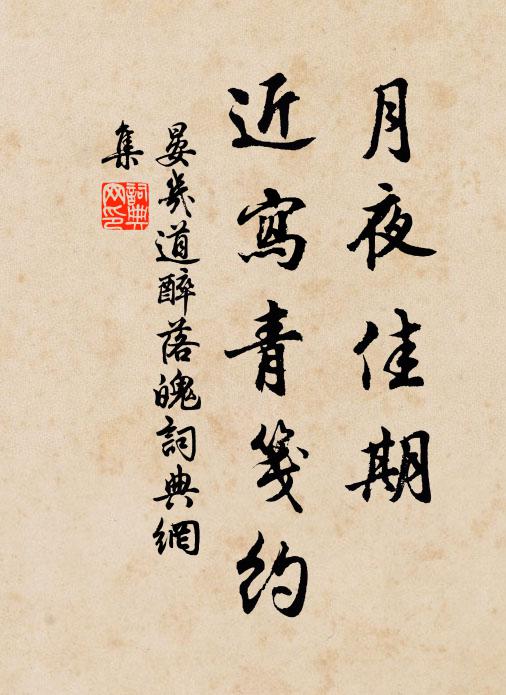 月夜佳期
近寫青箋約
晏幾道醉落魄詞典網
集
詞典網印